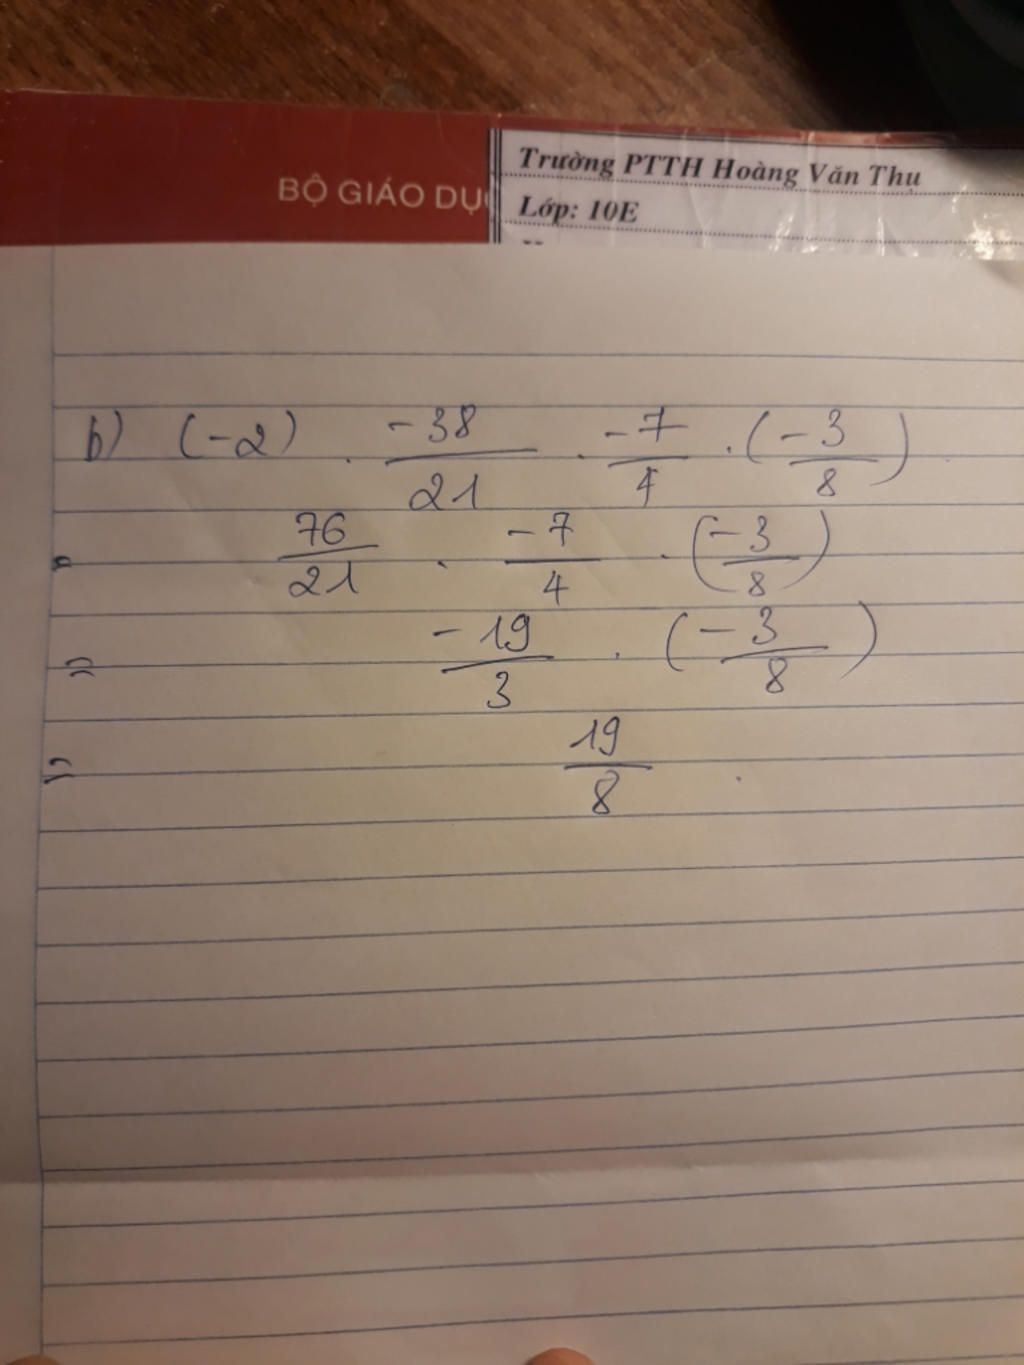 BỘ GIÁO DỤC
Trường PTTH Hoàng Văn Thụ
Lớp: 10E
b) (-2) . -38/21 . -7/4 . (-3/8)
= 76/21 . -7/4 . (-3/8)
= -19/3 . (-3/8)
= 19/8 .